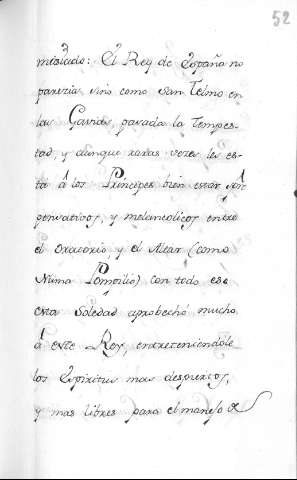 52
mexiado: El Rey de España no
parezia sino como San Telmo en
las Gavias, pasada la Tempes-
tad, y aunque raras vezes les es-
ta â los Principes bien estar
pensativos, y melancolicos entre
el Oratorio, y el Altar (como
Numa Pompilio) con todo ese
esta Soledad aprobechó mucho
â este Rey, entreteniendole
los Espiritus mas despiertos,
y mas libres para el manejo